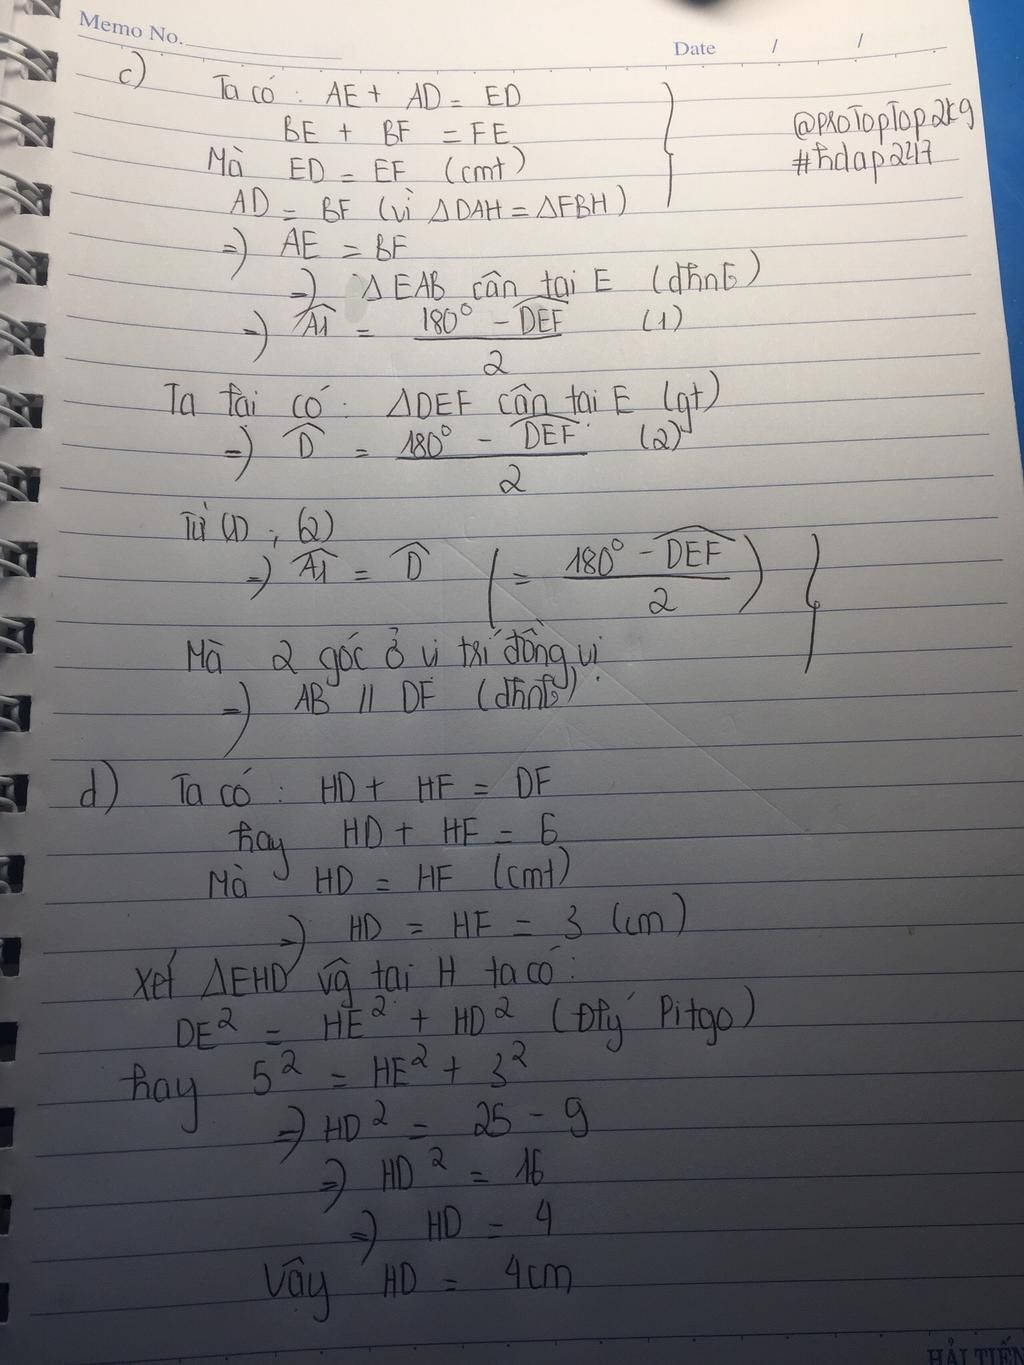 Memo No.
Date / /
c) Ta có : AE + AD = ED
BE + BF = FE
@proTopTop2k9
Mà ED = EF (cmt)
#hdap247
AD = BF (vì ΔDAH = ΔFBH)
=) AE = BF
=) ΔEAB cân tại E (dhnb)
=) Â1 = (180° - DEF^)/2 (1)
Ta lại có : ΔDEF cân tại E (gt)
=) D^ = (180° - DEF^)/2 (2)
Từ (1) ; (2)
=) Â1 = D^ ( = (180° - DEF^)/2 )
Mà 2 góc ở vị trí đồng vị
=) AB // DF (dhnb)
d) Ta có : HD + HF = DF
hay HD + HF = 6
Mà HD = HF (cmt)
=) HD = HF = 3 (cm)
Xét ΔEHD vg tại H ta có :
DE² = HE² + HD² (Đlý Pitgo)
hay 5² = HE² + 3²
=) HD² = 25 - 9
=) HD² = 16
=) HD = 4
Vậy HD = 4cm
HẢI TIẾN